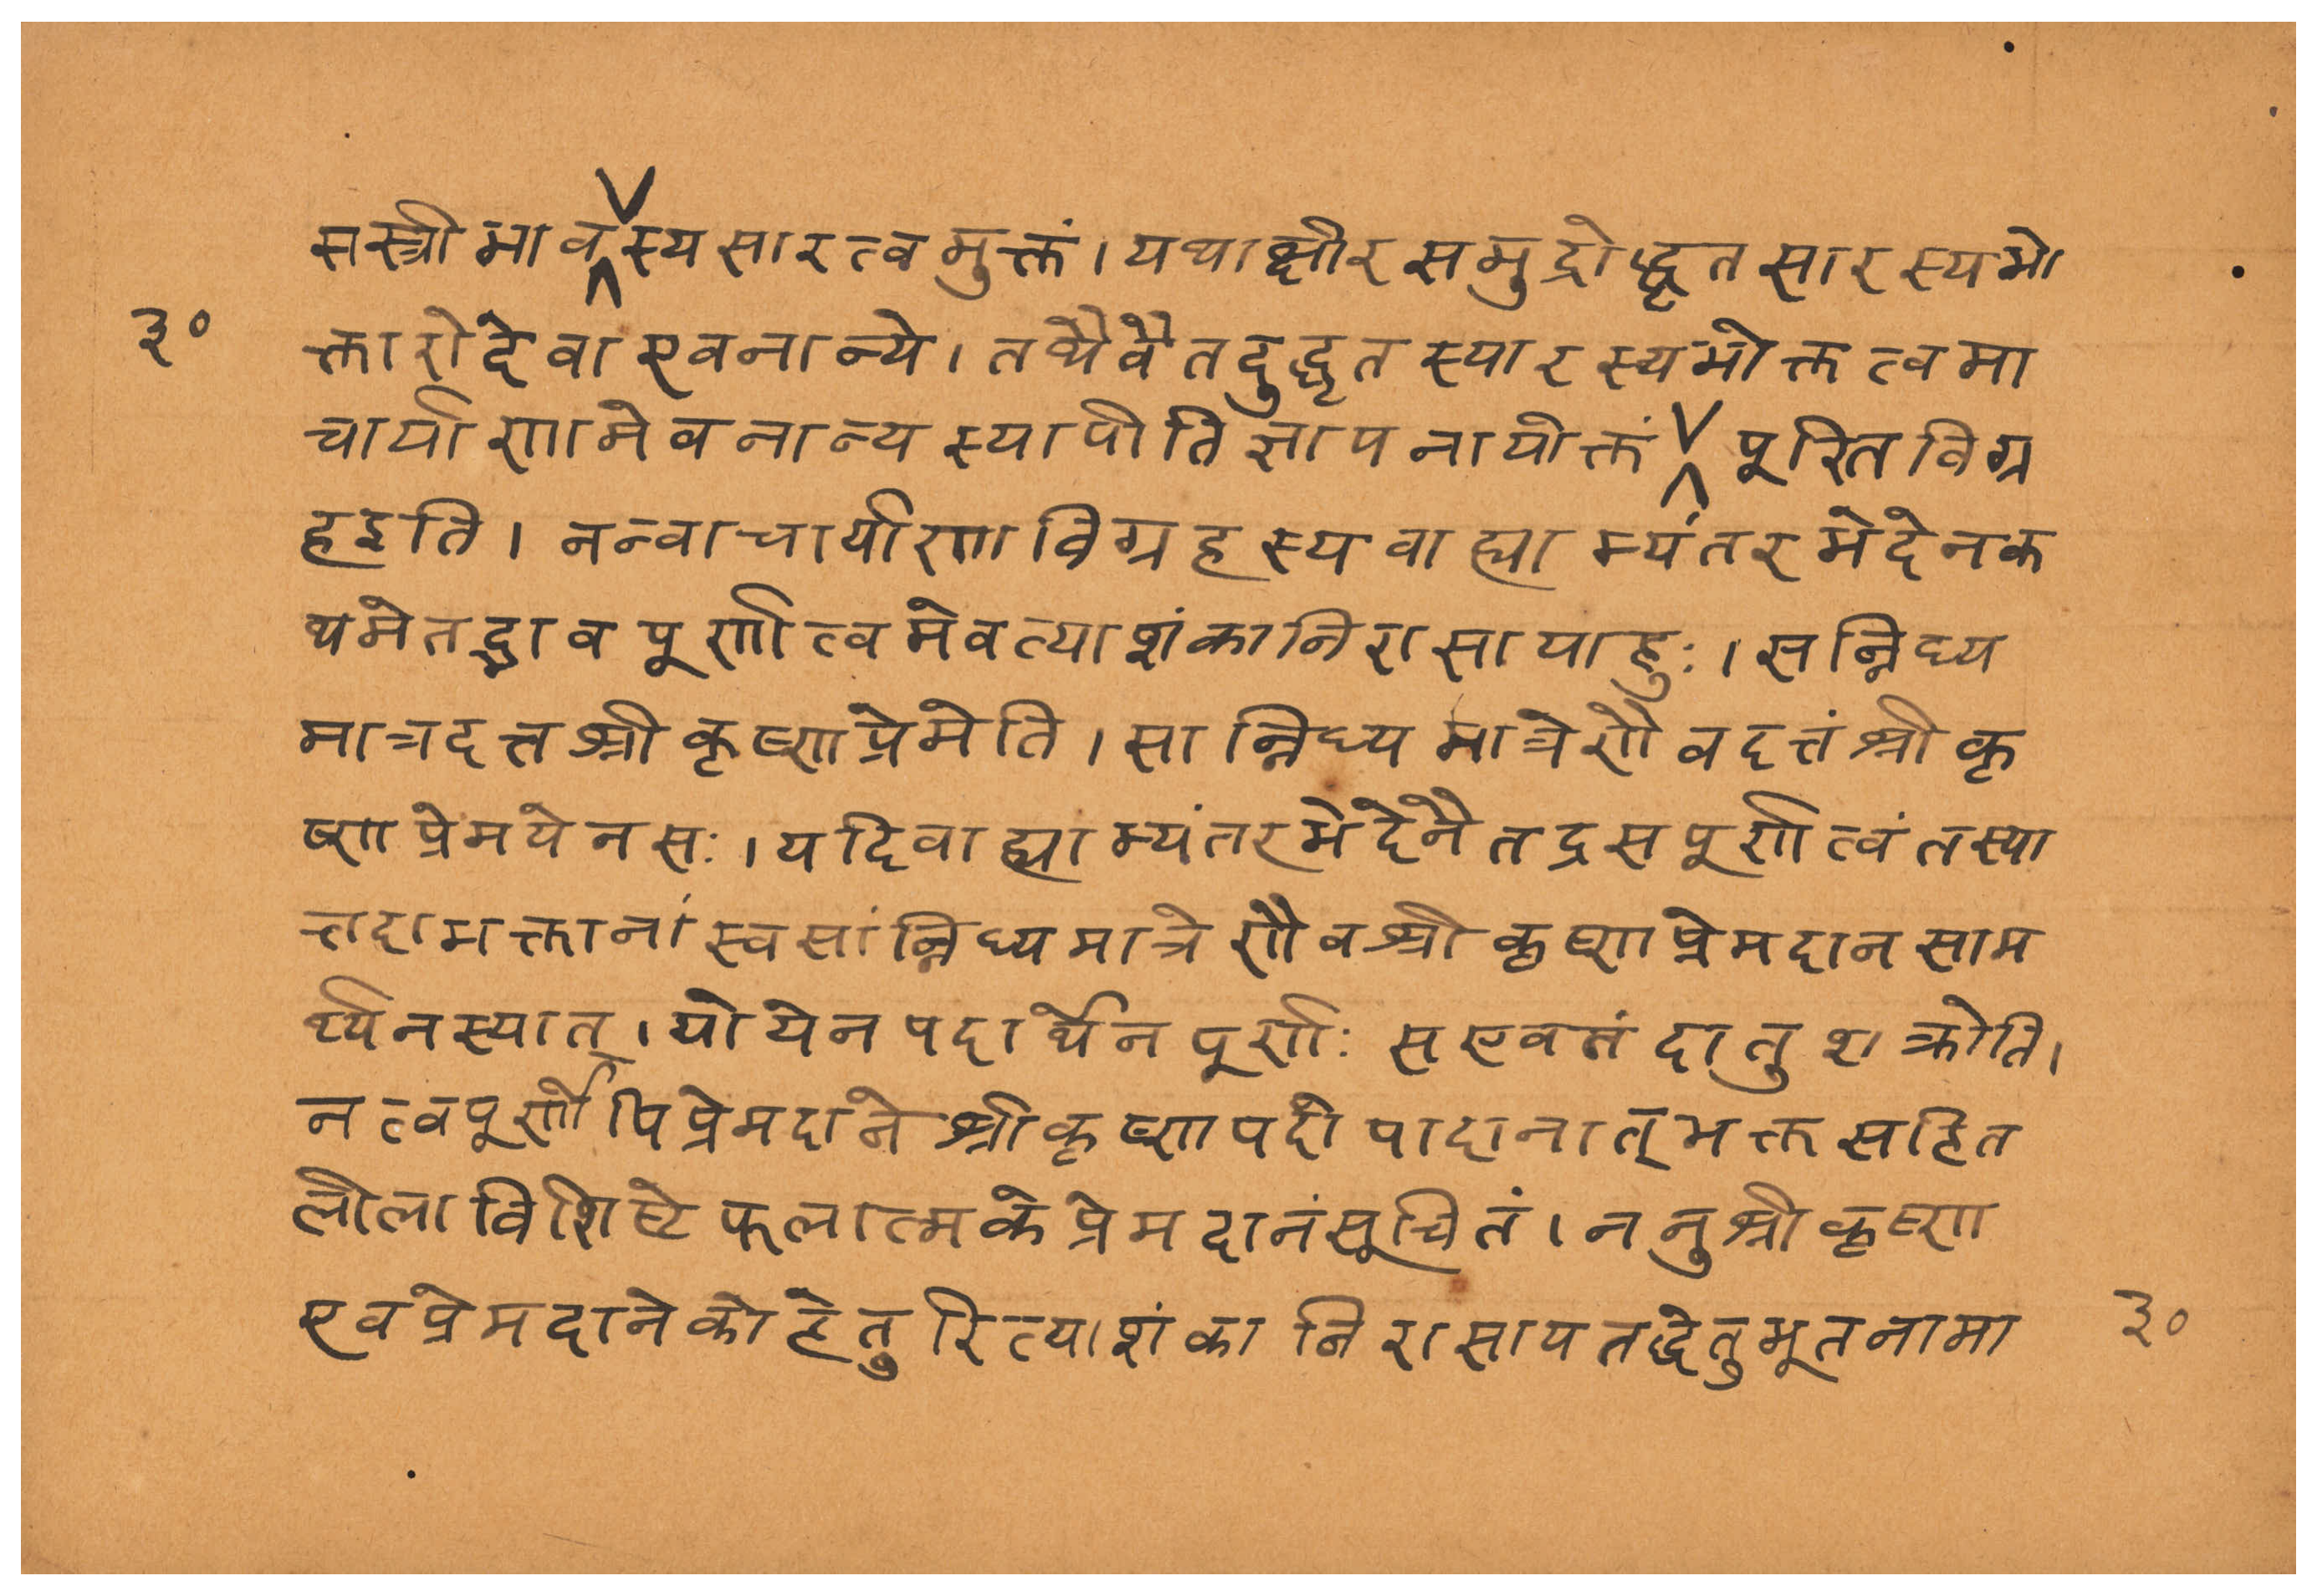 सस्त्रीभावस्यसारत्वमुक्तं।यथाक्षीरसमुद्रोद्धृतसारस्यभो
३०
क्तारोदेवाएवनान्ये।तथैवैतदुद्धृतस्यारस्यभोक्तत्वमा
चार्याणामेवनान्यस्यापीतिज्ञापनायोक्तं पूरितविग्र
हइति।नन्वाचार्याणाविग्रहस्यवाह्याभ्यंतरभेदेनक
थमेतद्भावपूर्णत्वमेवत्याशंकानिरासायाहुः।सन्निध्य
मात्रदत्तश्रीकृष्णप्रेमेति।सान्निध्यमात्रेणैवदत्तंश्रीकृ
ष्णप्रेमयेनसः।यदिवाह्याभ्यंतरभेदेनैतद्रसपूर्णत्वंतस्या
त्तदाभक्तानांस्वसांन्निध्यमात्रेणैवश्रीकृष्णप्रेमदानसाम
र्थ्येनस्यात्।योयेनपदार्थेनपूर्णः सएवतंदातुशक्नोति।
नत्वपूर्णोपिप्रेमदानेश्रीकृष्णपदोपादानात्भक्तसहित
लीलाविशिष्टेफलात्मकेप्रेमदानंसूचितं।ननुश्रीकृष्ण
एवप्रेमदानेकोहेतुरित्याशंकानिरासायतद्धेतुभूतनामा
३०